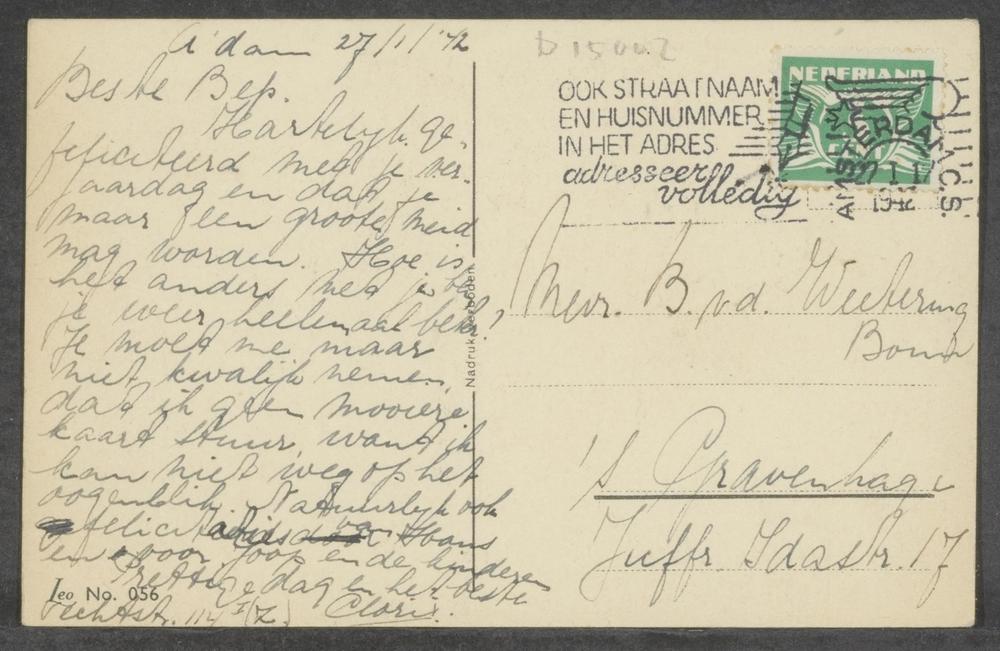 A'dam 27/1/'42
Beste Bep.
Hartelijk ge-
feliciteerd met je ver-
jaardag en dat je
maar een groote meid
mag worden. Hoe is
het anders met je ben
je weer heelemaal beter?
Je moet me maar
niet kwalijk nemen,
dat ik geen mooiere
kaart stuur, want ik
kan niet weg op het
oogenblik. Natuurlijk ook
felicitaties Hans
en voor Joop en de kinderen
Prettige dag en het beste
Vechtstr. 114 I (Z.) Cloris.
Leo No. 056
Nadruk verboden
D 15002
OOK STRAATNAAM
EN HUISNUMMER
IN HET ADRES
adresseer
volledig
NEDERLAND
AMSTERDAM C.S.
27 I 17
1942
Mevr. B. v.d. Weetering
Bonn
's Gravenhage
Juffr. Idastr. 17